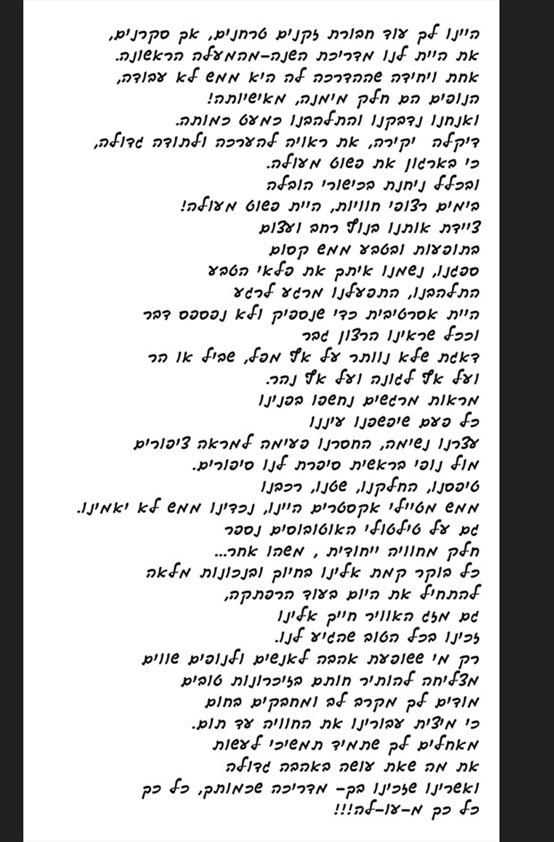 היינו לך עוד חבורת זקנים טרחנים, אך סקרנים,
את היית לנו מדריכת השנה-מהמעלה הראשונה.
אחת ויחידה שההדרכה לה היא ממש לא עבודה,
הנופים הם חלק מימנה, מאישיותה!
ואנחנו נדבקנו והתלהבנו כמעט כמותה.
דיקלה יקירה, את ראויה להערכה ולתודה גדולה,
כי בארגון את פשוט מעולה.
ובכלל ניחנת בכישורי הובלה
בימים רצופי חוויות, היית פשוט מעולה!
ציידת אותנו בנוף רחב ועצום
בתופעות ובטבע ממש קסום
ספגנו, נשמנו איתך את פלאי הטבע
התלהבנו, התפעלנו מרגע לרגע
היית אסרטיבית כדי שנספיק ולא נפספס דבר
וככל שראינו הרצון גבר
דאגת שלא נוותר על אף מפל, שביל או הר
ועל אף לגונה ועל אף נהר.
מראות מרגשים נחשפו בפנינו
כל פעם שיפשפנו עיננו
עצרנו נשימה, החסרנו פעימה למראה ציפורים
מול נופי בראשית סיפרת לנו סיפורים.
טיפסנו, החלקנו, שטנו, רכבנו
ממש מטיילי אקסטרים היינו, נכדינו ממש לא יאמינו.
גם על טילטולי האוטובוסים נספר
חלק מחוויה ייחודית , משהו אחר...
כל בוקר קמת אלינו בחיוך ובנכונות מלאה
להתחיל את היום בעוד הרפתקה,
גם מזג האוויר חייך אלינו
זכינו בכל הטוב שהגיע לנו.
רק מי ששופעת אהבה לאנשים ולנופים שווים
מצליחה להותיר חותם בזיכרונות טובים
מודים לך מקרב לב ומחבקים בחום
כי מיצית עבורינו את החוויה עד תום.
מאחלים לך שתמיד תמשיכי לעשות
את מה שאת עושה באהבה גדולה
ואשרינו שזכינו בך- מדריכה שכמותך, כל כך
כל כך מ-עו-לה!!!